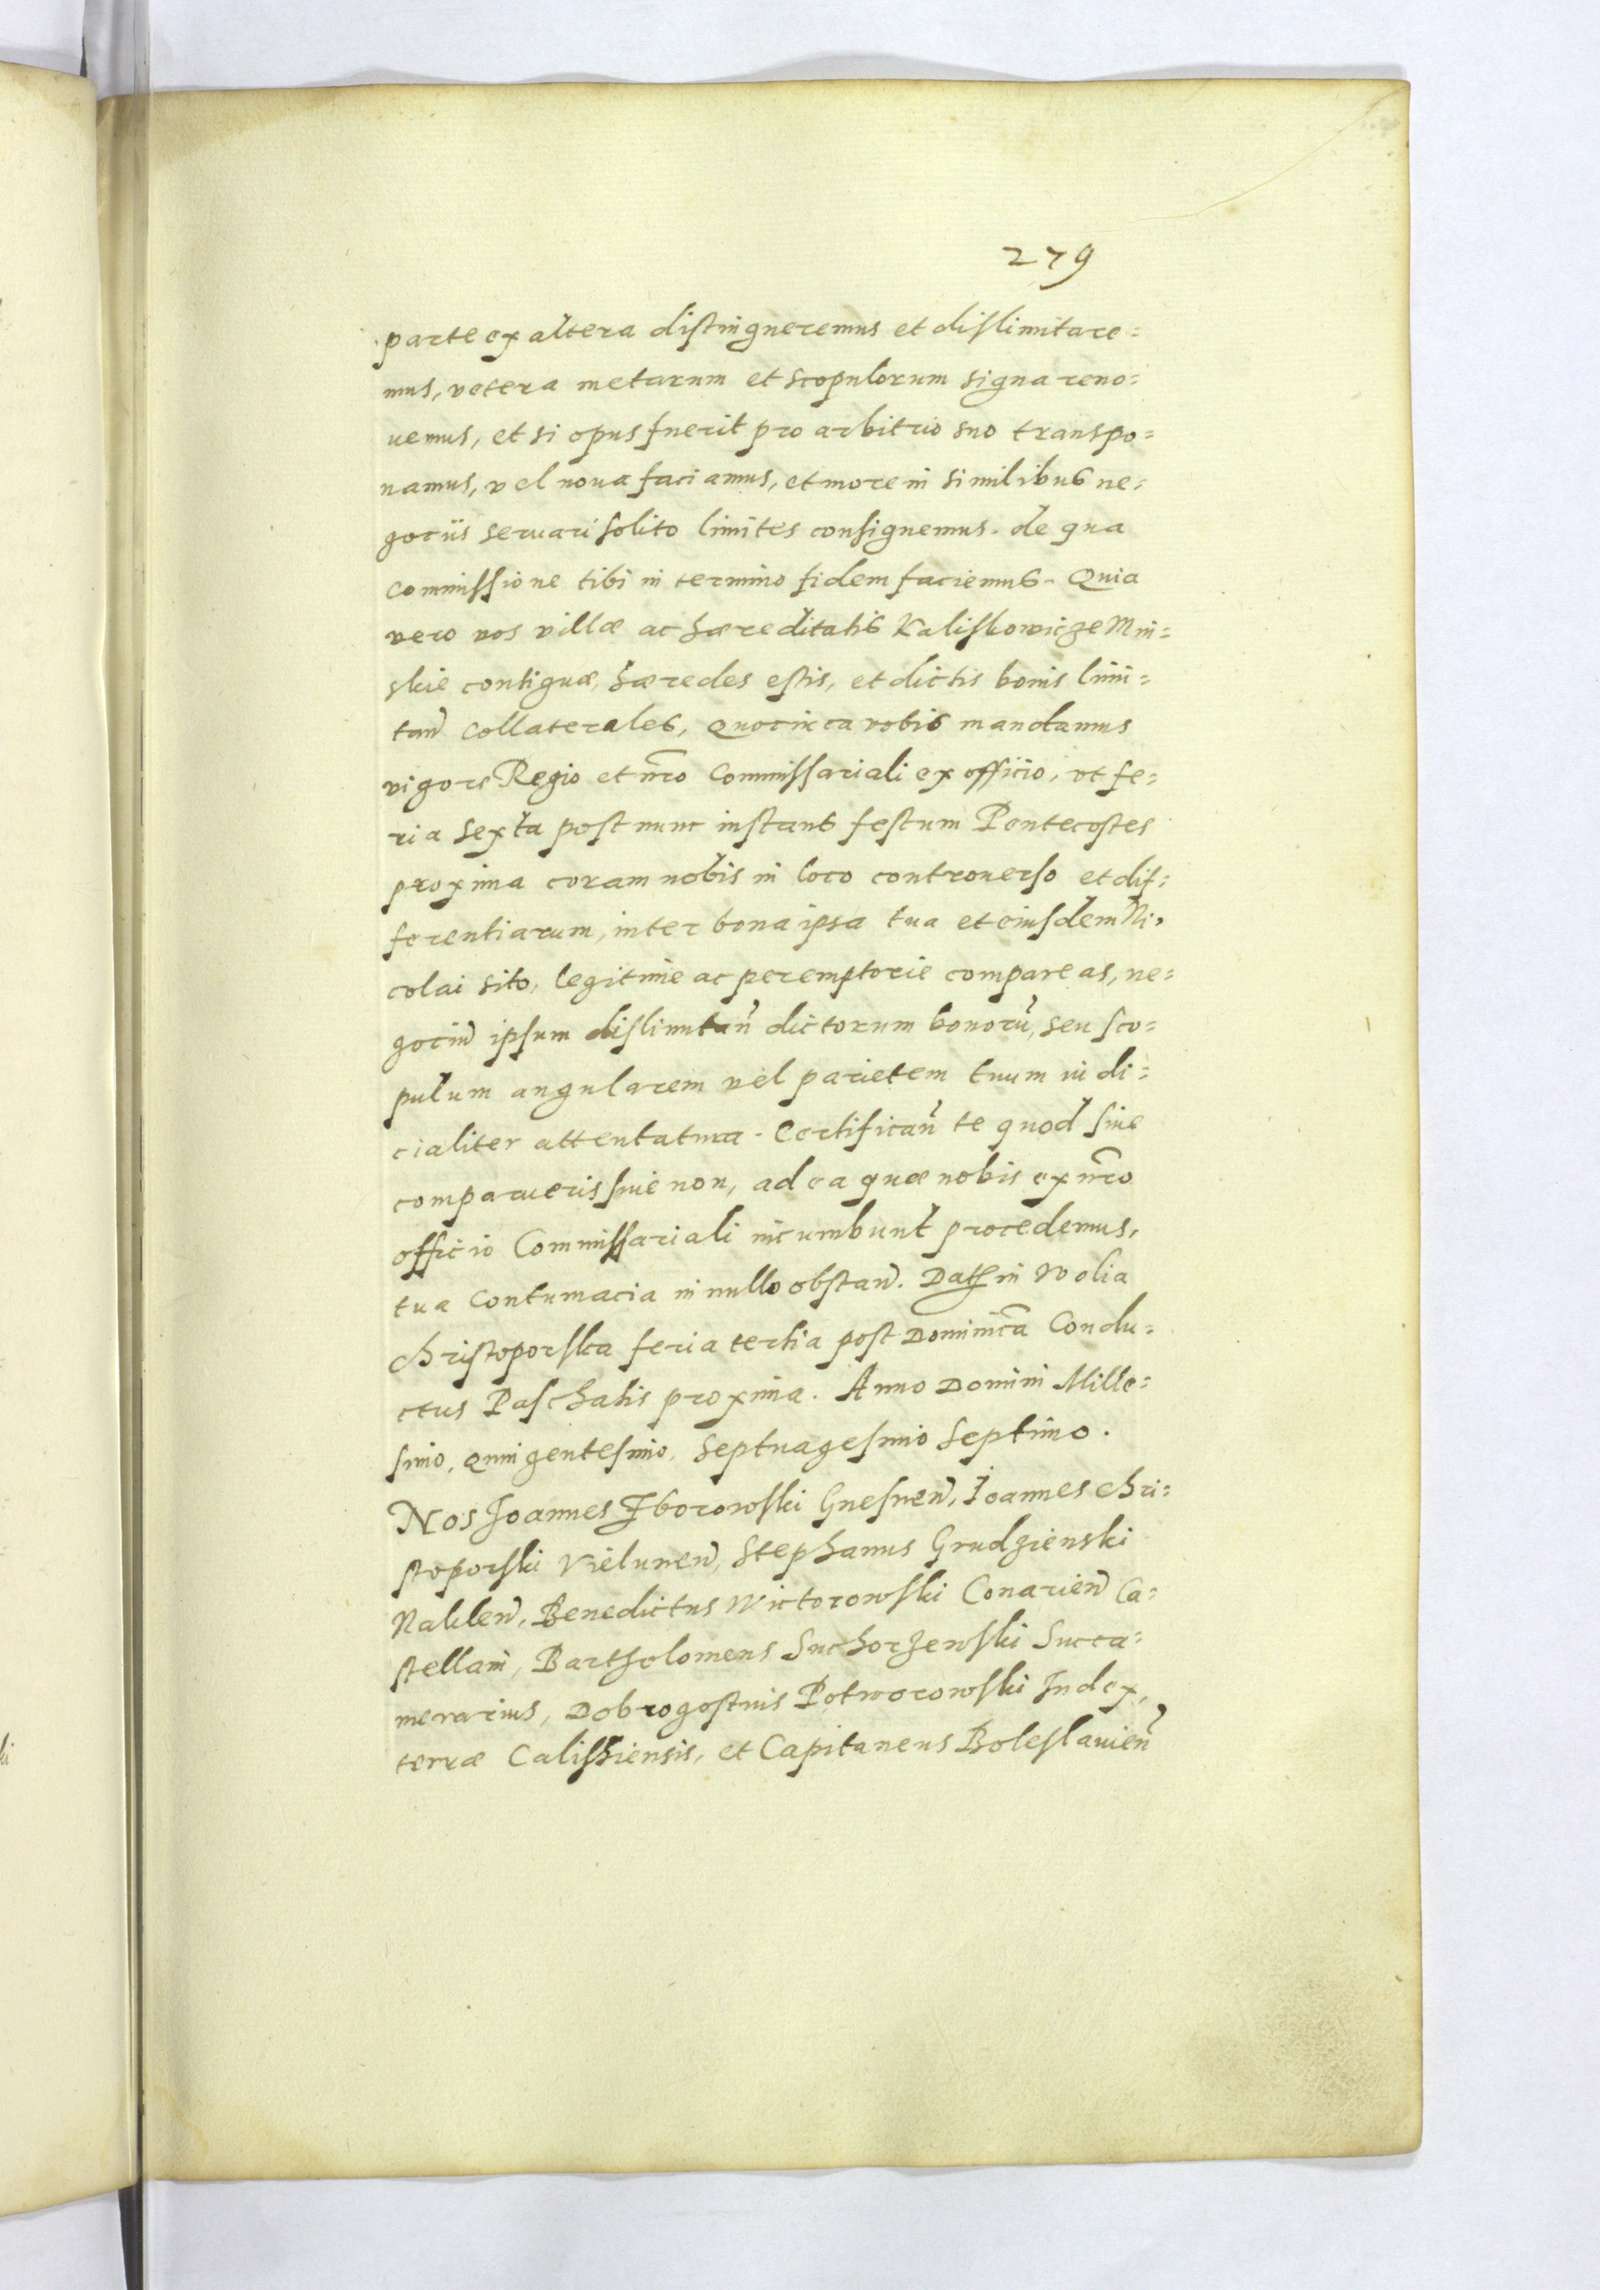 279
parte ex altera distingueremus et dislimitare=
mus, vetera metarum et scopulorum signa reno=
uemus, et si opus fuerit pro arbitrio suo transpo=
namus, vel noua faciamus, et more in similibus ne=
gociis seruari solito limites consignemus. de qua
Commissione tibi in termino fidem faciemus. Quia
vero vos villæ ac hæreditatis Kaliskowicze Min=
skie contiguæ, hæredes estis, et dictis bonis limi=
tan̄ Collaterales, Quocirca vobis mandamus
vigore Regio et nr̄o Commissariali ex officio, vt fe=
ria sexta post nunc instans festum Pentecostes
proxima coram nobis in loco controuerso et dif=
ferentiarum, inter bona ipsa tua et eiusdem Ni=
colai sito, legitime ac peremptorie compareas, ne=
gociū ipsum dislimitan̄ dictorum bonorū, seu sco=
pulum angularem vel parietem tuum iudi=
cialiter attentatura. Certifican̄ te quod siue
comparueris siue non, ad ea quæ nobis ex nr̄o
officio Commissariali incumbunt procedemus,
tua Contumacia in nullo obstan̄. Dat̄ in Wolia
Christoporska feria tertia post Dominicā Condu=
ctus Paschatis proxima. Anno Domini Mille=
simo, quingentesimo, septuagesimo septimo.
Nos Joannes Zborowski Gnesnen̄, Joannes Chri=
stoporski Vielunen̄, Stephanus Grudzienski
Naklen̄, Benedictus Wictorowski Conarien̄ Ca=
stellani, Bartholomeus Suchorzewski Succa=
merarius, Dobrogostius Potworowski Iudex,
terræ Calishiensis, et Capitaneus Boleslauien̄